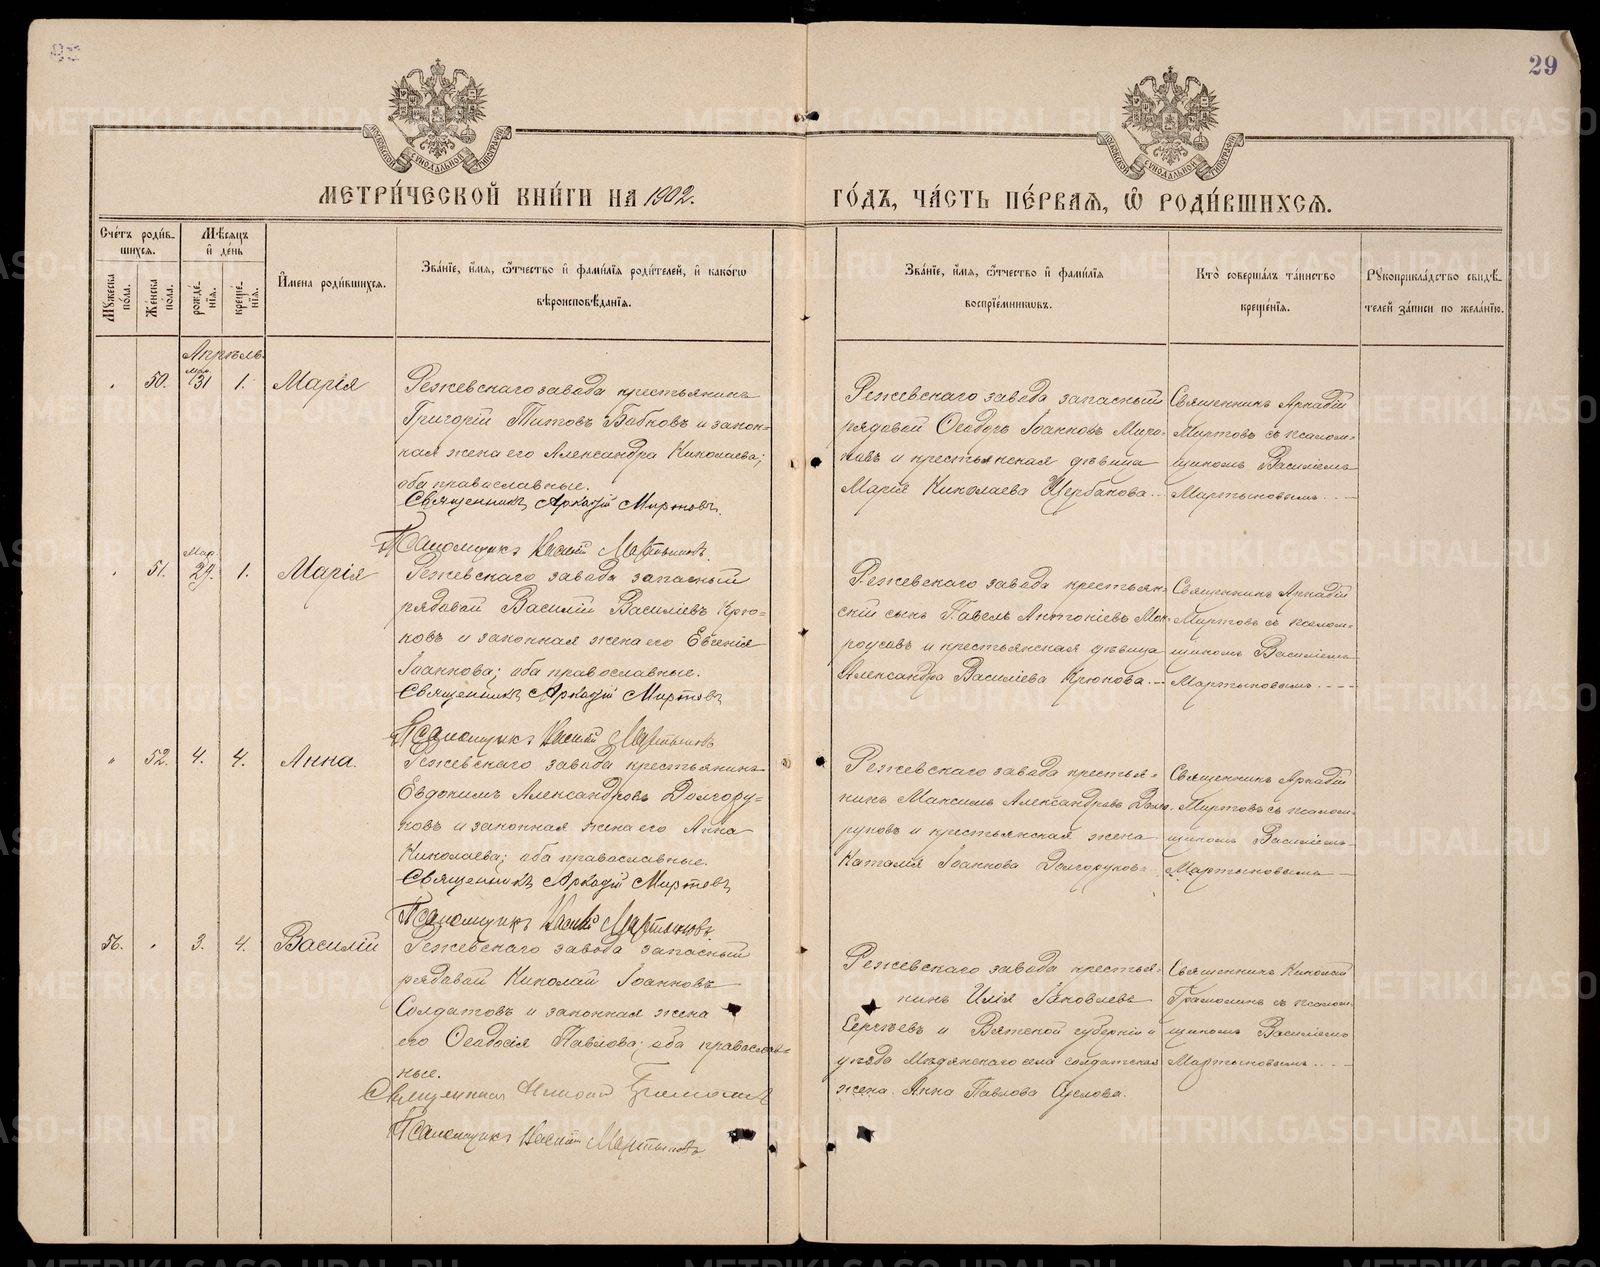 29
МЕТРИ́ЧЕСКОЙ КНИ́ГИ НА 1902.
ГО́ДЪ, ЧА́СТЬ ПЕ́РВАѦ, Ѡ РОДИ́ВШИХСѦ.
Сче́тъ роди́в-
шихсѧ.
Мꙋ́жеска по́ла.
Же́нска по́ла.
Мѣ́сѧцъ
и҆ де́нь
рожде́нїѧ.
креще́нїѧ.
И҆мена роди́вшихсѧ.
Зва́нїе, и҆́мѧ, ѻ҆́тчество и҆ фами́лїѧ роди́телей, и҆ како́гѡ
вѣроисповѣ́данїѧ.
Зва́нїе, и҆́мѧ, ѻ҆́тчество и҆ фами́лїѧ
воспрїе́мниковъ.
Кто̀ соверша́лъ та́инство
креще́нїѧ.
Рꙋкоприкла́дство свидѣ́-
телей за́писи по жела́нїю.
Апрѣль
50.
Мар. 31
1.
Марія
Режевскаго завода крестьянинъ
Григорій Титовъ Бабковъ и закон-
ная жена его Александра Николаева;
оба православные.
Священникъ Аркадій Миртовъ
Псаломщикъ Василій Мартыновъ
Режевскаго завода запасный
рядовой Ѳеодоръ Іоанновъ Миро-
новъ и крестьянская дѣвица
Марія Николаева Щербакова.
Священникъ Аркадій
Миртовъ съ псалом-
щикомъ Василіемъ
Мартыновымъ.
51.
Мар. 29.
1.
Марія
Режевскаго завода запасный
рядовой Василій Василіевъ Крю-
ковъ и законная жена его Евгенія
Іоаннова; оба православные.
Священникъ Аркадій Миртовъ
Псаломщикъ Василій Мартыновъ
Режевскаго завода крестьян-
скій сынъ Павелъ Антоніевъ Мок-
роусовъ и крестьянская дѣвица
Александра Василіева Крюкова.
Священникъ Аркадій
Миртовъ съ псалом-
щикомъ Василіемъ
Мартыновымъ.
52.
4.
4.
Анна.
Режевскаго завода крестьянинъ
Евдокимъ Александровъ Долгору-
ковъ и законная жена его Анна
Николаева; оба православные.
Священникъ Аркадій Миртовъ
Псаломщикъ Василій Мартыновъ
Режевскаго завода крестья-
нинъ Максимъ Александровъ Долго-
руковъ и крестьянская жена
Наталія Іоаннова Долгорукова.
Священникъ Аркадій
Миртовъ съ псалом-
щикомъ Василіемъ
Мартыновымъ
56.
3.
4.
Василій
Режевскаго завода запасный
рядовой Николай Іоанновъ
Солдатовъ и законная жена
его Ѳеодосія Павлова; оба православ-
ные.
Священникъ Николай
Псаломщикъ Василій Мартыновъ
Режевскаго завода крестья-
нинъ Илія Іаковлевъ
Сергѣевъ и Вятской губерніи и
уѣзда Мѣдянскаго села солдатская
жена Анна Павлова
Священникъ Николай
съ псалом-
щикомъ Василіемъ
Мартыновымъ.
METRIKI.GASO-URAL.RU